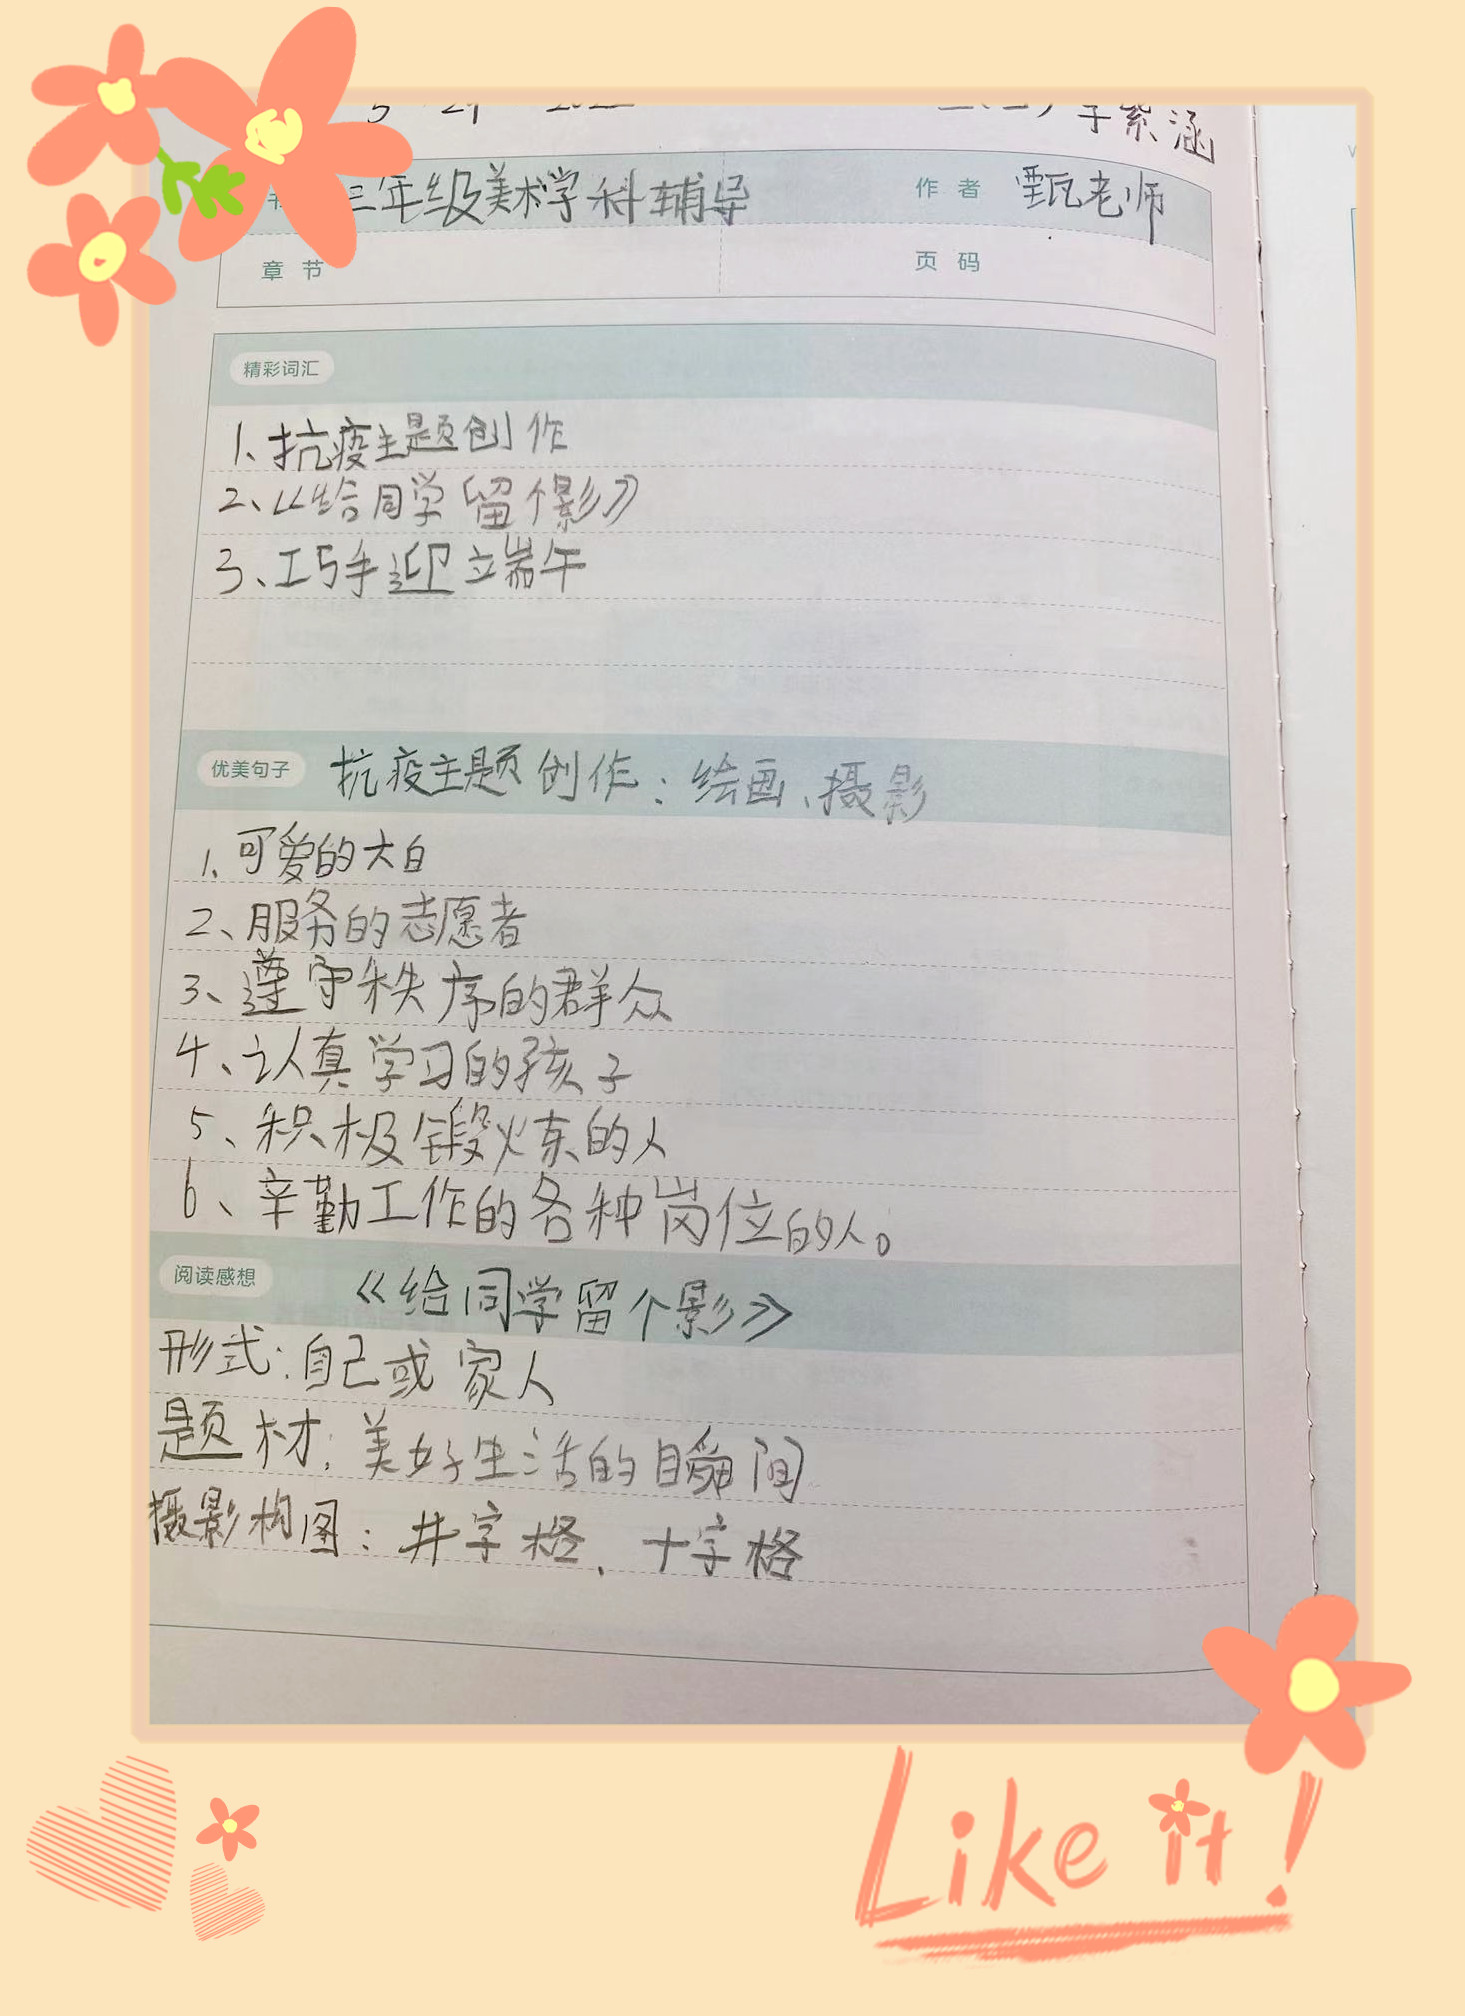 李紫涵
三年级美术学科辅导 作者 甄老师
章节 页码
精彩词汇
1、抗疫主题创作
2、《给同学留个影》
3、巧手迎立端午
优美句子 抗疫主题创作：绘画、摄影
1、可爱的大白
2、服务的志愿者
3、遵守秩序的群众
4、认真学习的孩子
5、积极锻炼的人
6、辛勤工作的各种岗位的人。
阅读感想 《给同学留个影》
形式：自己或家人
题材：美好生活的瞬间
摄影构图：井字格、十字格
Like it!